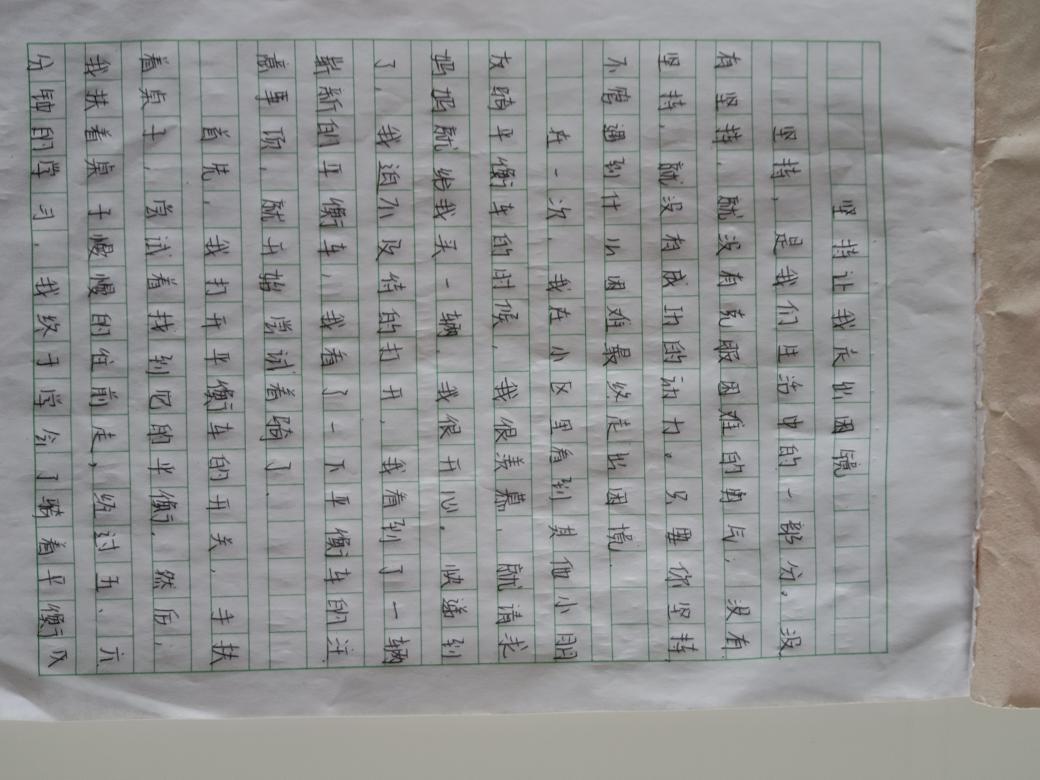 坚持让我走出困镜
坚持，是我们生活中的一部分。没
有坚持，就没有克服困难的勇气，没有
坚持，就没有成功的动力。只要你坚持
不管遇到什么困难最终走出困境.
在一次，我在小区里看到其他小朋
友骑平衡车的时候，我很羡慕，就请求
妈妈就给我买一辆，我很开心。快递到
了，我迫不及待的打开，我看到了一辆
崭新的平衡车，我看了一下平衡车的注
意事项，就开始尝试着骑了.
首先，我打开平衡车的开关，手扶
着桌子，尝试着找到它的平衡，然后，
我扶着桌子慢慢的往前走，经过五、六
分钟的学习，我终于学会了骑着平衡